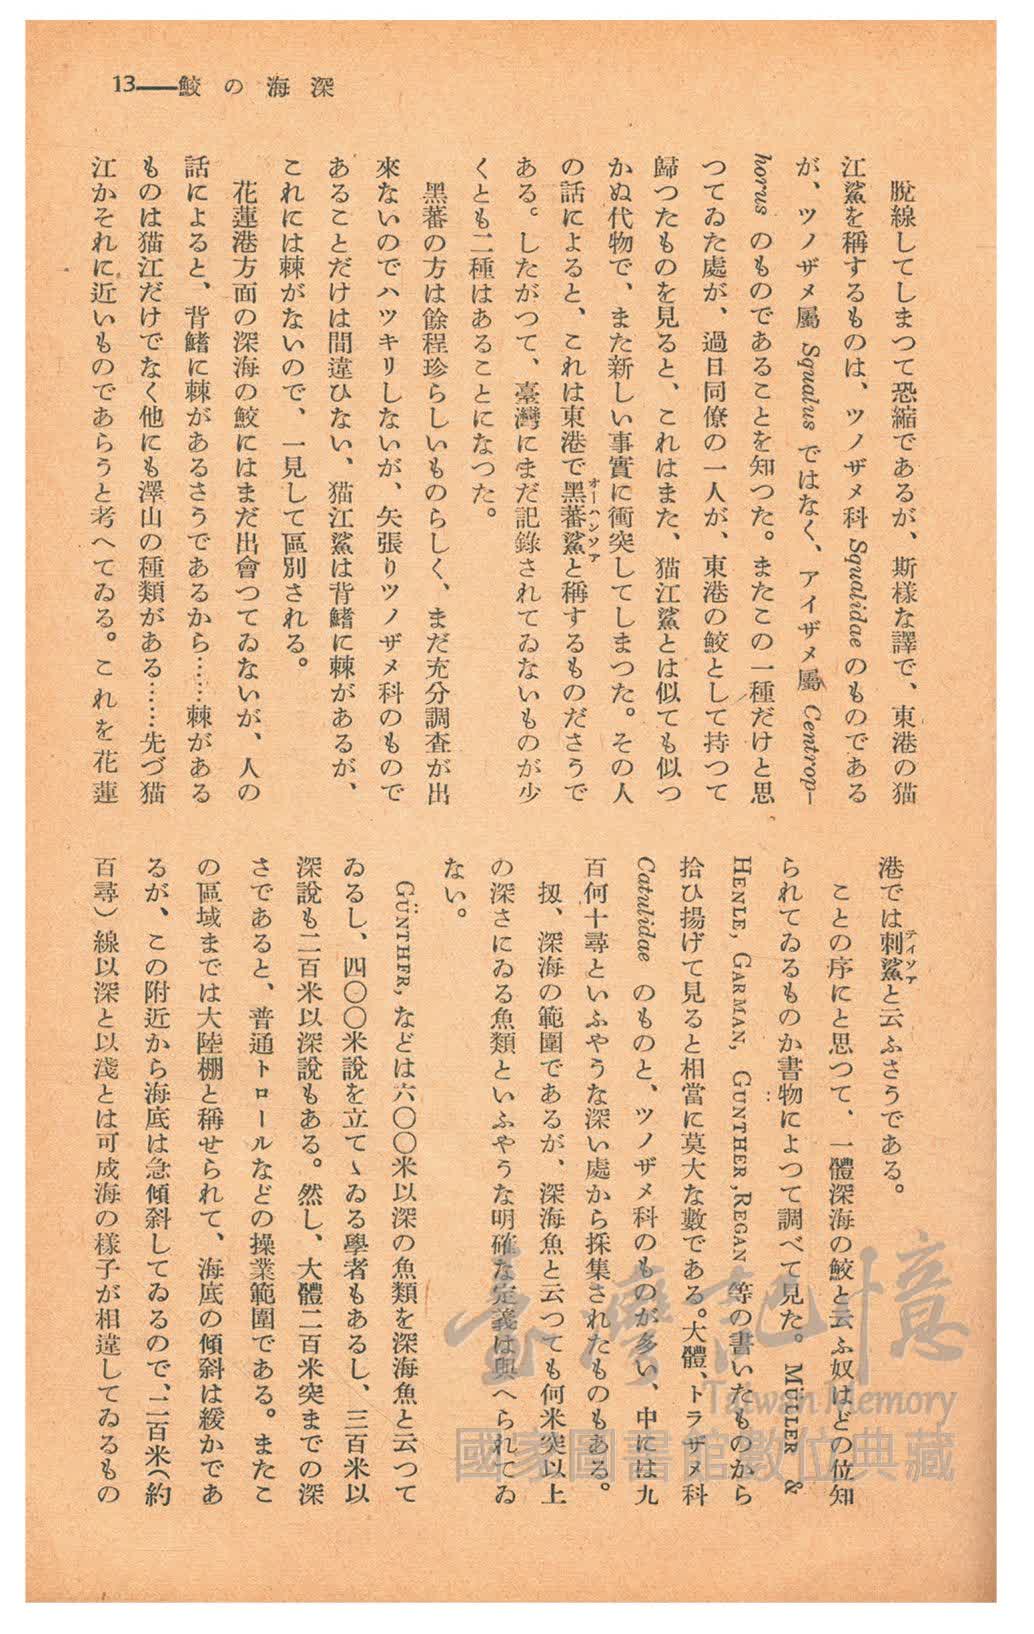 13——鮫の海深
脫線してしまつて恐縮であるが、斯様な譯で、東港の猫
江鯊を稱するものは、ツノザメ科 Squalidae のものである
が、ツノザメ屬 Squalus ではなく、アイザメ屬 Centrop-
horus のものであることを知つた。またこの一種だけと思
つてゐた處が、過日同僚の一人が、東港の鮫として持つて
歸つたものを見ると、これはまた、猫江鯊とは似ても似つ
かぬ代物で、また新しい事實に衝突してしまつた。その人
の話によると、これは東港で黑蕃鯊と稱するものださうで
オーハンソア
ある。したがつて、臺灣にまだ記錄されてゐないものが少
くとも二種はあることになつた。
黑蕃の方は餘程珍らしいものらしく、まだ充分調査が出
來ないのでハツキリしないが、矢張りツノザメ科のもので
あることだけは間違ひない、猫江鯊は背鰭に棘があるが、
これには棘がないので、一見して區別される。
花蓮港方面の深海の鮫にはまだ出會つてゐないが、人の
話によると、背鰭に棘があるさうであるから……棘がある
ものは猫江だけでなく他にも澤山の種類がある……先づ猫
江かそれに近いものであらうと考へてゐる。これを花蓮
港では刺鯊と云ふさうである。
テイソア
ことの序にと思つて、一體深海の鮫と云ふ奴はどの位知
られてゐるものか書物によつて調べて見た。 MÜLLER &
HENLE, GARMAN, GUNTHER, REGAN 等の書いたものから
拾ひ揚げて見ると相當に莫大な數である。大體、トラザメ科
Catulidae のものと、ツノザメ科のものが多い、中には九
百何十尋といふやうな深い處から採集されたものもある。
扨、深海の範圍であるが、深海魚と云つても何米突以上
の深さにゐる魚類といふやうな明確な定義は與へられてゐ
ない。
GÜNTHFR, などは六〇〇米以深の魚類を深海魚と云つて
ゐるし、四〇〇米說を立てゝゐる學者もあるし、三百米以
深說も二百米以深說もある。然し、大體二百米突までの深
さであると、普通トロールなどの操業範圍である。またこ
の區域までは大陸棚と稱せられて、海底の傾斜は緩かであ
るが、この附近から海底は急傾斜してゐるので、二百米(約
百尋)線以深と以淺とは可成海の樣子が相違してゐるもの
臺灣記憶
Taiwan Memory
國家圖書館數位典藏